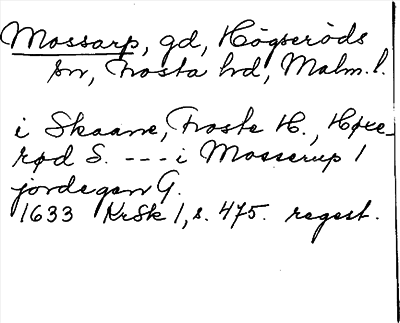 Mossarp, gd, Högseröds
sn, Frosta hd, Malm. l.
i Skaane, Froste H., Høxe-
rød S. --- i Mosserup 1
jordegen G.
1633 KrSk 1, s. 475. regest.